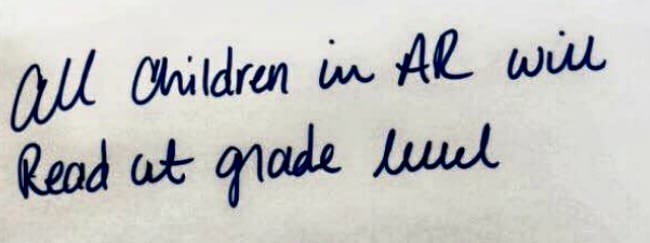 All Children in AR will
Read at grade level